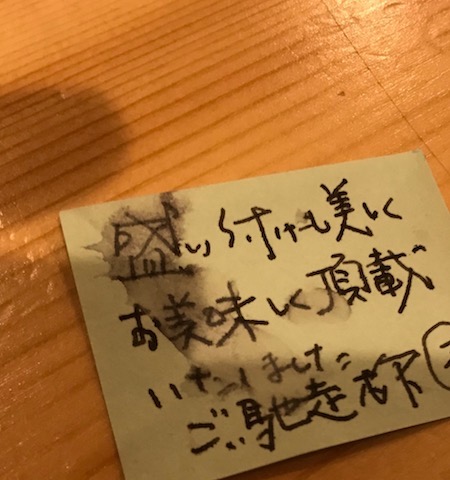 盛り付けも美しく
お美味しく頂戴
いたしました
ご馳走様